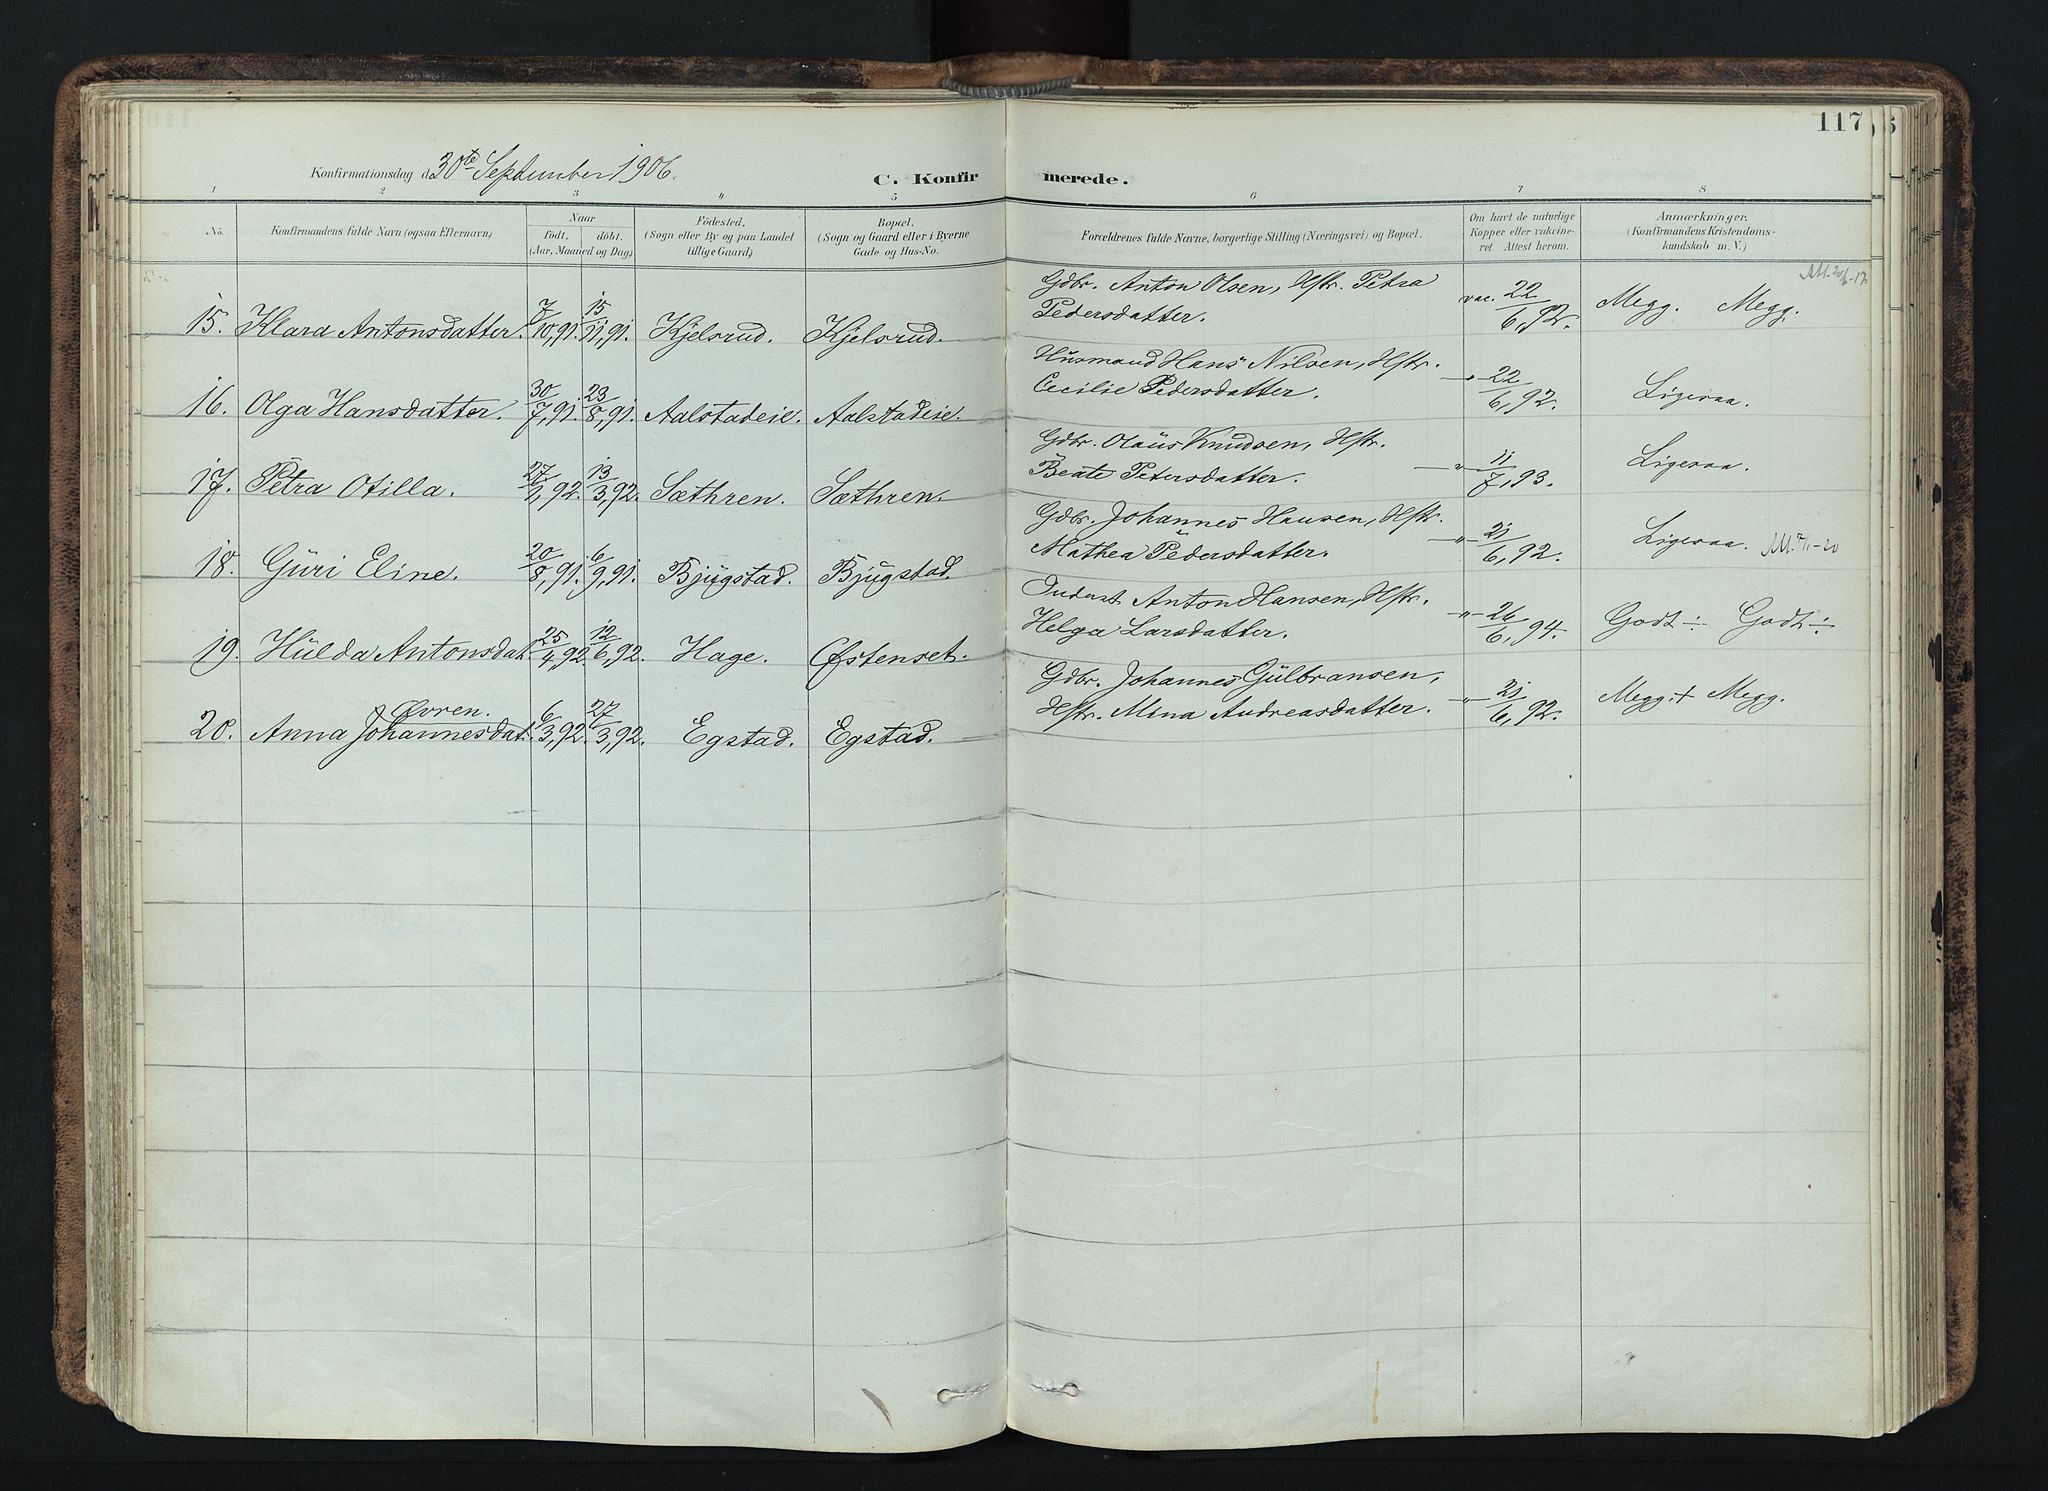 117
Konfirmationsdag d. 30te September 1906.
C. Konfirmerede.
1 2 3 4 5 6 7 8
No. Konfirmandens fulde Navn (ogsaa Efternavn) Naar født. døbt. (Aar, Maaned og Dag) Fødested. (Sogn eller By og paa Landet tillige Gaard) Bopæl. (Sogn og Gaard eller i Byerne Gade og Hus-No. Forældrenes fulde Navne, borgerlige Stilling (Næringsvei) og Bopæl. Om havt de naturlige Kopper eller vakcineret. Attest herom. Anmærkninger. (Konfirmandens Kristendomskundskab m. V.)
15. Klara Antonsdatter. 7/10,91. 15/11,91. Kjelsrud. Kjelsrud. Gdbr. Anton Olsen, Hstr. Petra
Pedersdatter. vac. 22/6,92. Megg. Megg.
16. Olga Hansdatter. 30/7,91. 23/8,91. Aalstadeie. Aalstadeie. Husmand Hans Nilsen, Hstr.
Cecilie Pedersdatter. —"— 22/6,92. Ligesaa.
17. Petra Otilla. 27/1,92. 13/3,92. Sæthren. Sæthren. Gdbr. Olaus Knudsen, Hstr.
Beate Petersdatter. —"— 11/7,93. Ligesaa.
18. Guri Eline. 20/8,91. 6/9,91. Bjugstad. Bjugstad. Gdbr. Johannes Hansen, Hstr.
Mathea Pedersdatter. —"— 21/6,92. Ligesaa.
19. Hulda Antonsdat. 25/4,92. 12/6,92. Hage. Østenset. Inderst Anton Hansen, Hstr.
Helga Larsdatter. —"— 26/6,94. Godt ÷ Godt ÷
20. Anna Johannesdat. Øvren. 6/3,92. 27/3,92. Egstad. Egstad. Gdbr. Johannes Gulbransen,
Hstr. Mina Andreasdatter. —"— 21/6,92. Megg.+ Megg.